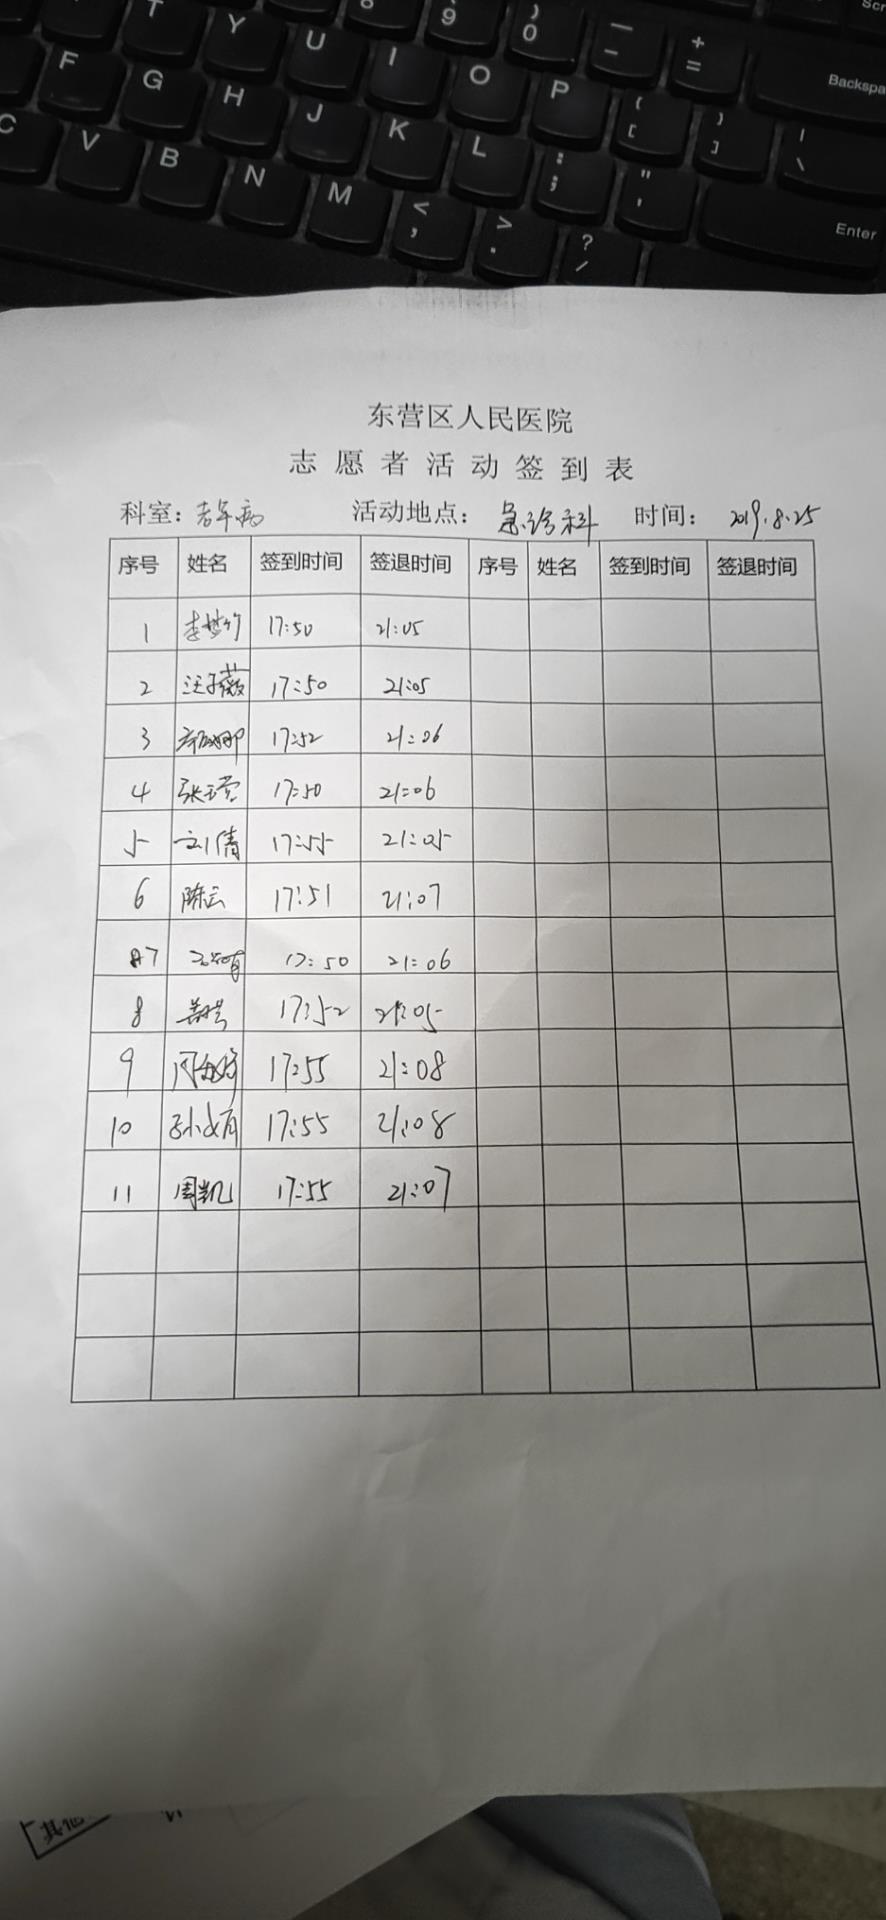 T Y U I O P
8 9 ) 0 — - + = Backspa
F G H J K L : ; " ' { [ } ] | \
C V B N M < , > . ? / Enter
Scr
东营区人民医院
志愿者活动签到表
科室：老年病 活动地点：急诊科 时间：2019.8.25
序号 姓名 签到时间 签退时间 序号 姓名 签到时间 签退时间
1 李梦竹 17:50 21:05
2 汪子薇 17:50 21:05
3 17:52 21:06
4 张玉莹 17:50 21:06
5 刘倩 17:55 21:05
6 陈云 17:51 21:07
7 17:50 21:06
8 17:52 21:05
9 17:55 21:08
10 孙文娟 17:55 21:08
11 周凯 17:55 21:07
其他